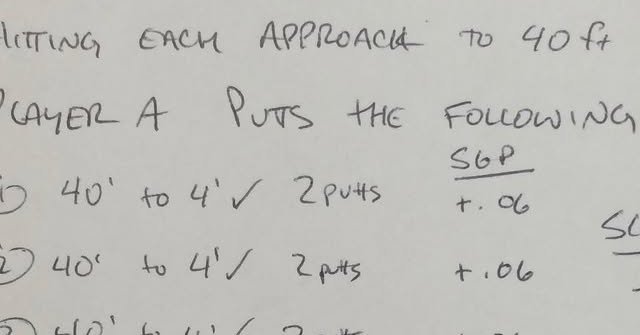 HITTING EACH APPROACH TO 40 ft
PLAYER A PUTS THE FOLLOWING
SGP
1) 40' to 4' ✓ 2 putts +.06
2) 40' to 4' ✓ 2 putts +.06
40' to 4' ✓